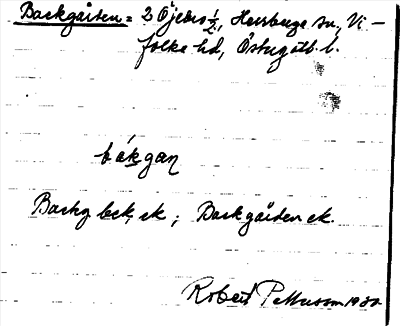 Backgården = 2 Öjebro ½, Herrberga sn, Vi-
folka hd, Östergötl. l.
bákgan
Backg bek. ek; Backgården ek.
Robert Pettersson 1930